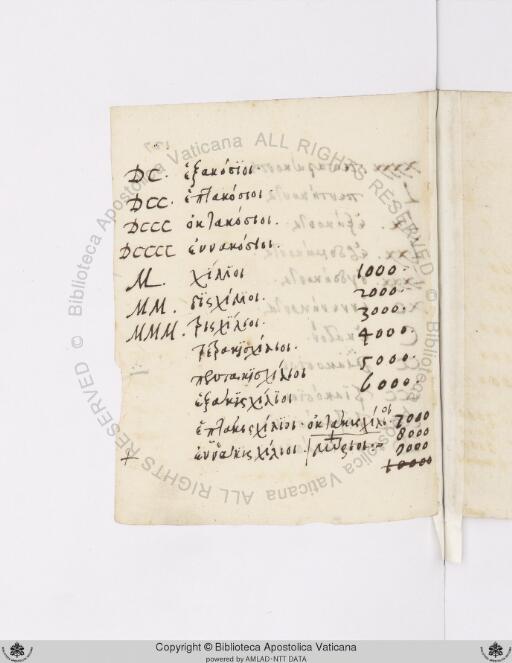 DC. ἑξακόσϊοι.
DCC. ἑπτακόσιοι.
DCCC ὀκτακόσιοι.
DCCCC ἐννακόσιοι.
M. χίλϊοι 1000.
MM. δὶςχίλϊοι. 2000.
MMM. τριςχίλϊοι. 3000.
τετρακισχίλιοι. 4000.
πεντακισχίλιοι 5000
ἑξακὶςχίλϊοι 6000
ἑπτακιςχίλϊοι. ὀκτακιςχίλιοι 7000
8000
ἐννακιςχίλιοι. 9000
10000
Copyright © Biblioteca Apostolica Vaticana
powered by AMLAD-NTT DATA